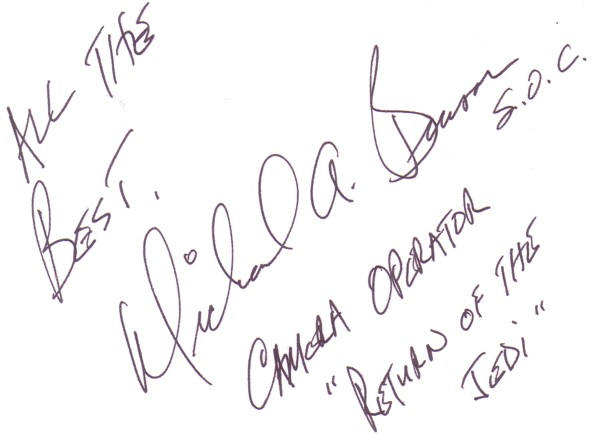 ALL THE
BEST.
Michael A. Benson
S.O.C.
CAMERA OPERATOR
"RETURN OF THE
JEDI"